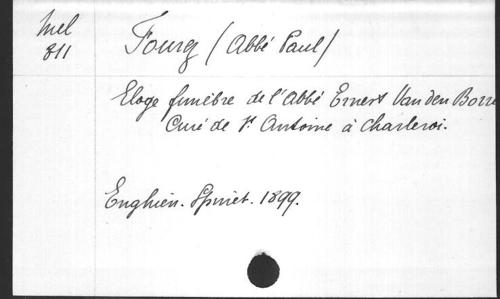 Mel
811
Fourg (Abbé Paul)
Eloge funèbre de l'Abbé Ernest Van den Borre
Curé de St Antoine à Charleroi.
Enghien. Spinet. 1899.